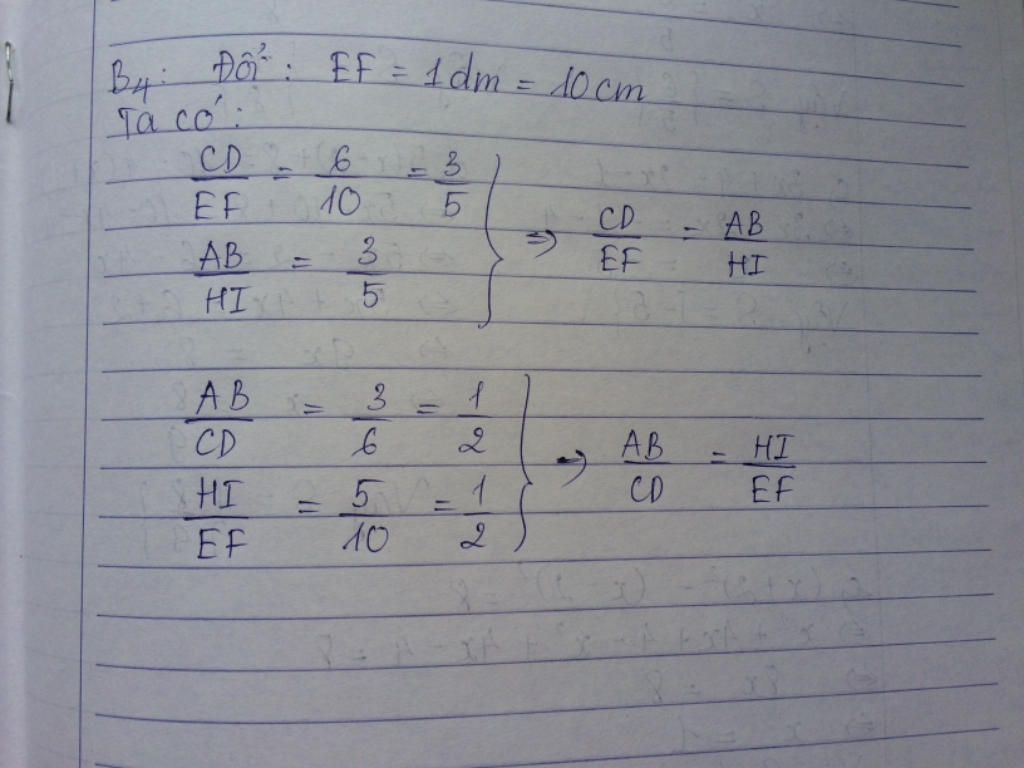 B4: Đổi: EF = 1dm = 10cm
Ta có:
CD/EF = 6/10 = 3/5
AB/HI = 3/5
⇒ CD/EF = AB/HI
AB/CD = 3/6 = 1/2
HI/EF = 5/10 = 1/2
⇒ AB/CD = HI/EF